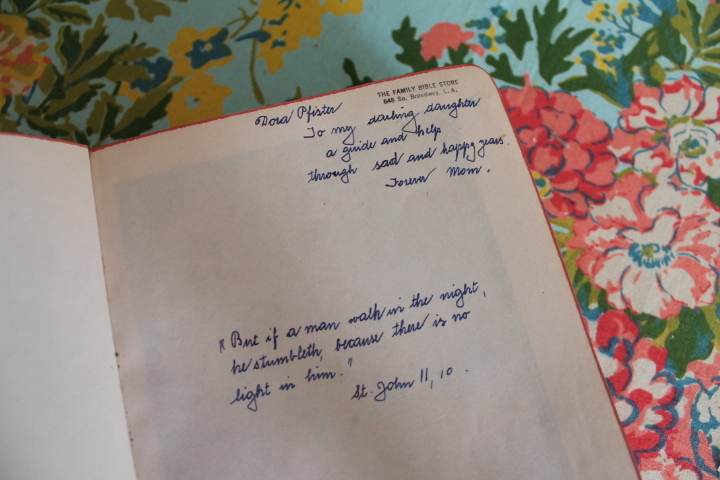 THE FAMILY BIBLE STORE
648 So. Broadway, L.A.
Dora Pfister
To my darling daughter
a guide and help
through sad and happy years.
Forever Mom.
"But if a man walk in the night,
he stumbleth, because there is no
light in him."
St. John 11, 10.